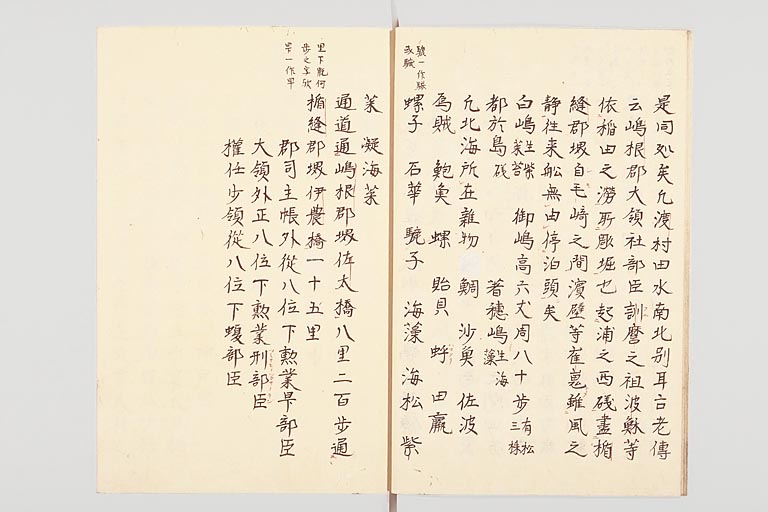 是同処矣凢渡村田水南北别耳古老傳
云嶋根郡大領社部臣訓麿之祖波蘇等
依稲田之澇所彫堀也起浦之西礒盡楯
縫郡堺自毛﨑之間濱壁等崔嵬雖風之
静徃来舩無由停泊頭矣
白嶋生紫菜苔 御嶋高六丈周八十歩有松三株
都於島礒 著穂嶋生海藻
凢北海所在雜物 鯛 沙魚 佐波
烏賊 鮑魚 螺 貽貝 蚌 田蠃
螺子 石華 蠣子 海藻 海松 紫
菜 凝海菜
通道通嶋根郡堺佐太橋八里二百歩通
楯縫郡堺伊農橋一十五里
郡司主帳外從八位下勲業早部臣
大領外正八位下勲業刑部臣
權任少領從八位下蝮部臣